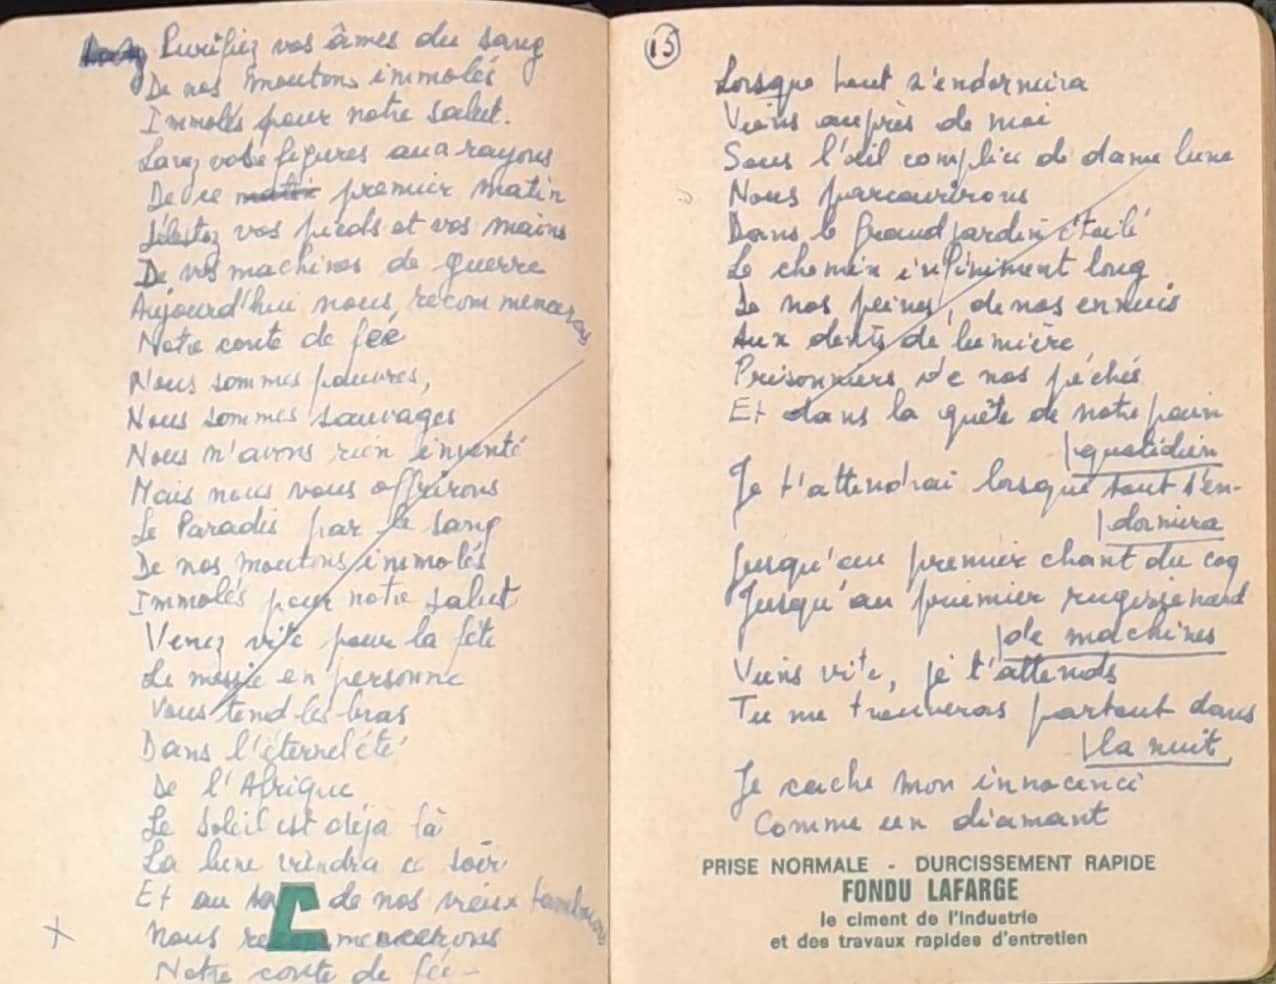 Purifiez vos âmes du sang
De nos moutons immolés
Immolés pour notre salut.
Lavez vos figures aux rayons
De ce matin premier matin
Délestez vos pieds et vos mains
De vos machines de guerre
Aujourd'hui nous recommencerons
Notre conte de fée
Nous sommes pauvres,
Nous sommes sauvages
Nous n'avons rien inventé
Mais nous vous offrirons
Le Paradis par le sang
De nos moutons immolés
Immolés pour notre salut
Venez vite pour la fête
Le messie en personne
Vous tend les bras
Dans l'éternel été
De l'Afrique
Le soleil est déjà là
La lune viendra ce soir
Et au son de nos vieux tambours
Nous recommencerons
Notre conte de fée -
15
Lorsque tout s'endormira
Viens auprès de moi
Sous l'œil complice de dame lune
Nous parcourirons
Dans le grand jardin étoilé
Le chemin infiniment long
De nos peines, de nos ennuis
Aux dents de lumière
Prisonniers de nos péchés
Et dans la quête de notre pain
quotidien
Je t'attendrai lorsque tout s'en-
dormira
Jusqu'au premier chant du coq
Jusqu'au premier rugissement
de machines
Viens vite, je t'attends
Tu me trouveras partout dans
la nuit
Je cache mon innocence
Comme un diamant
PRISE NORMALE - DURCISSEMENT RAPIDE
FONDU LAFARGE
le ciment de l'industrie
et des travaux rapides d'entretien